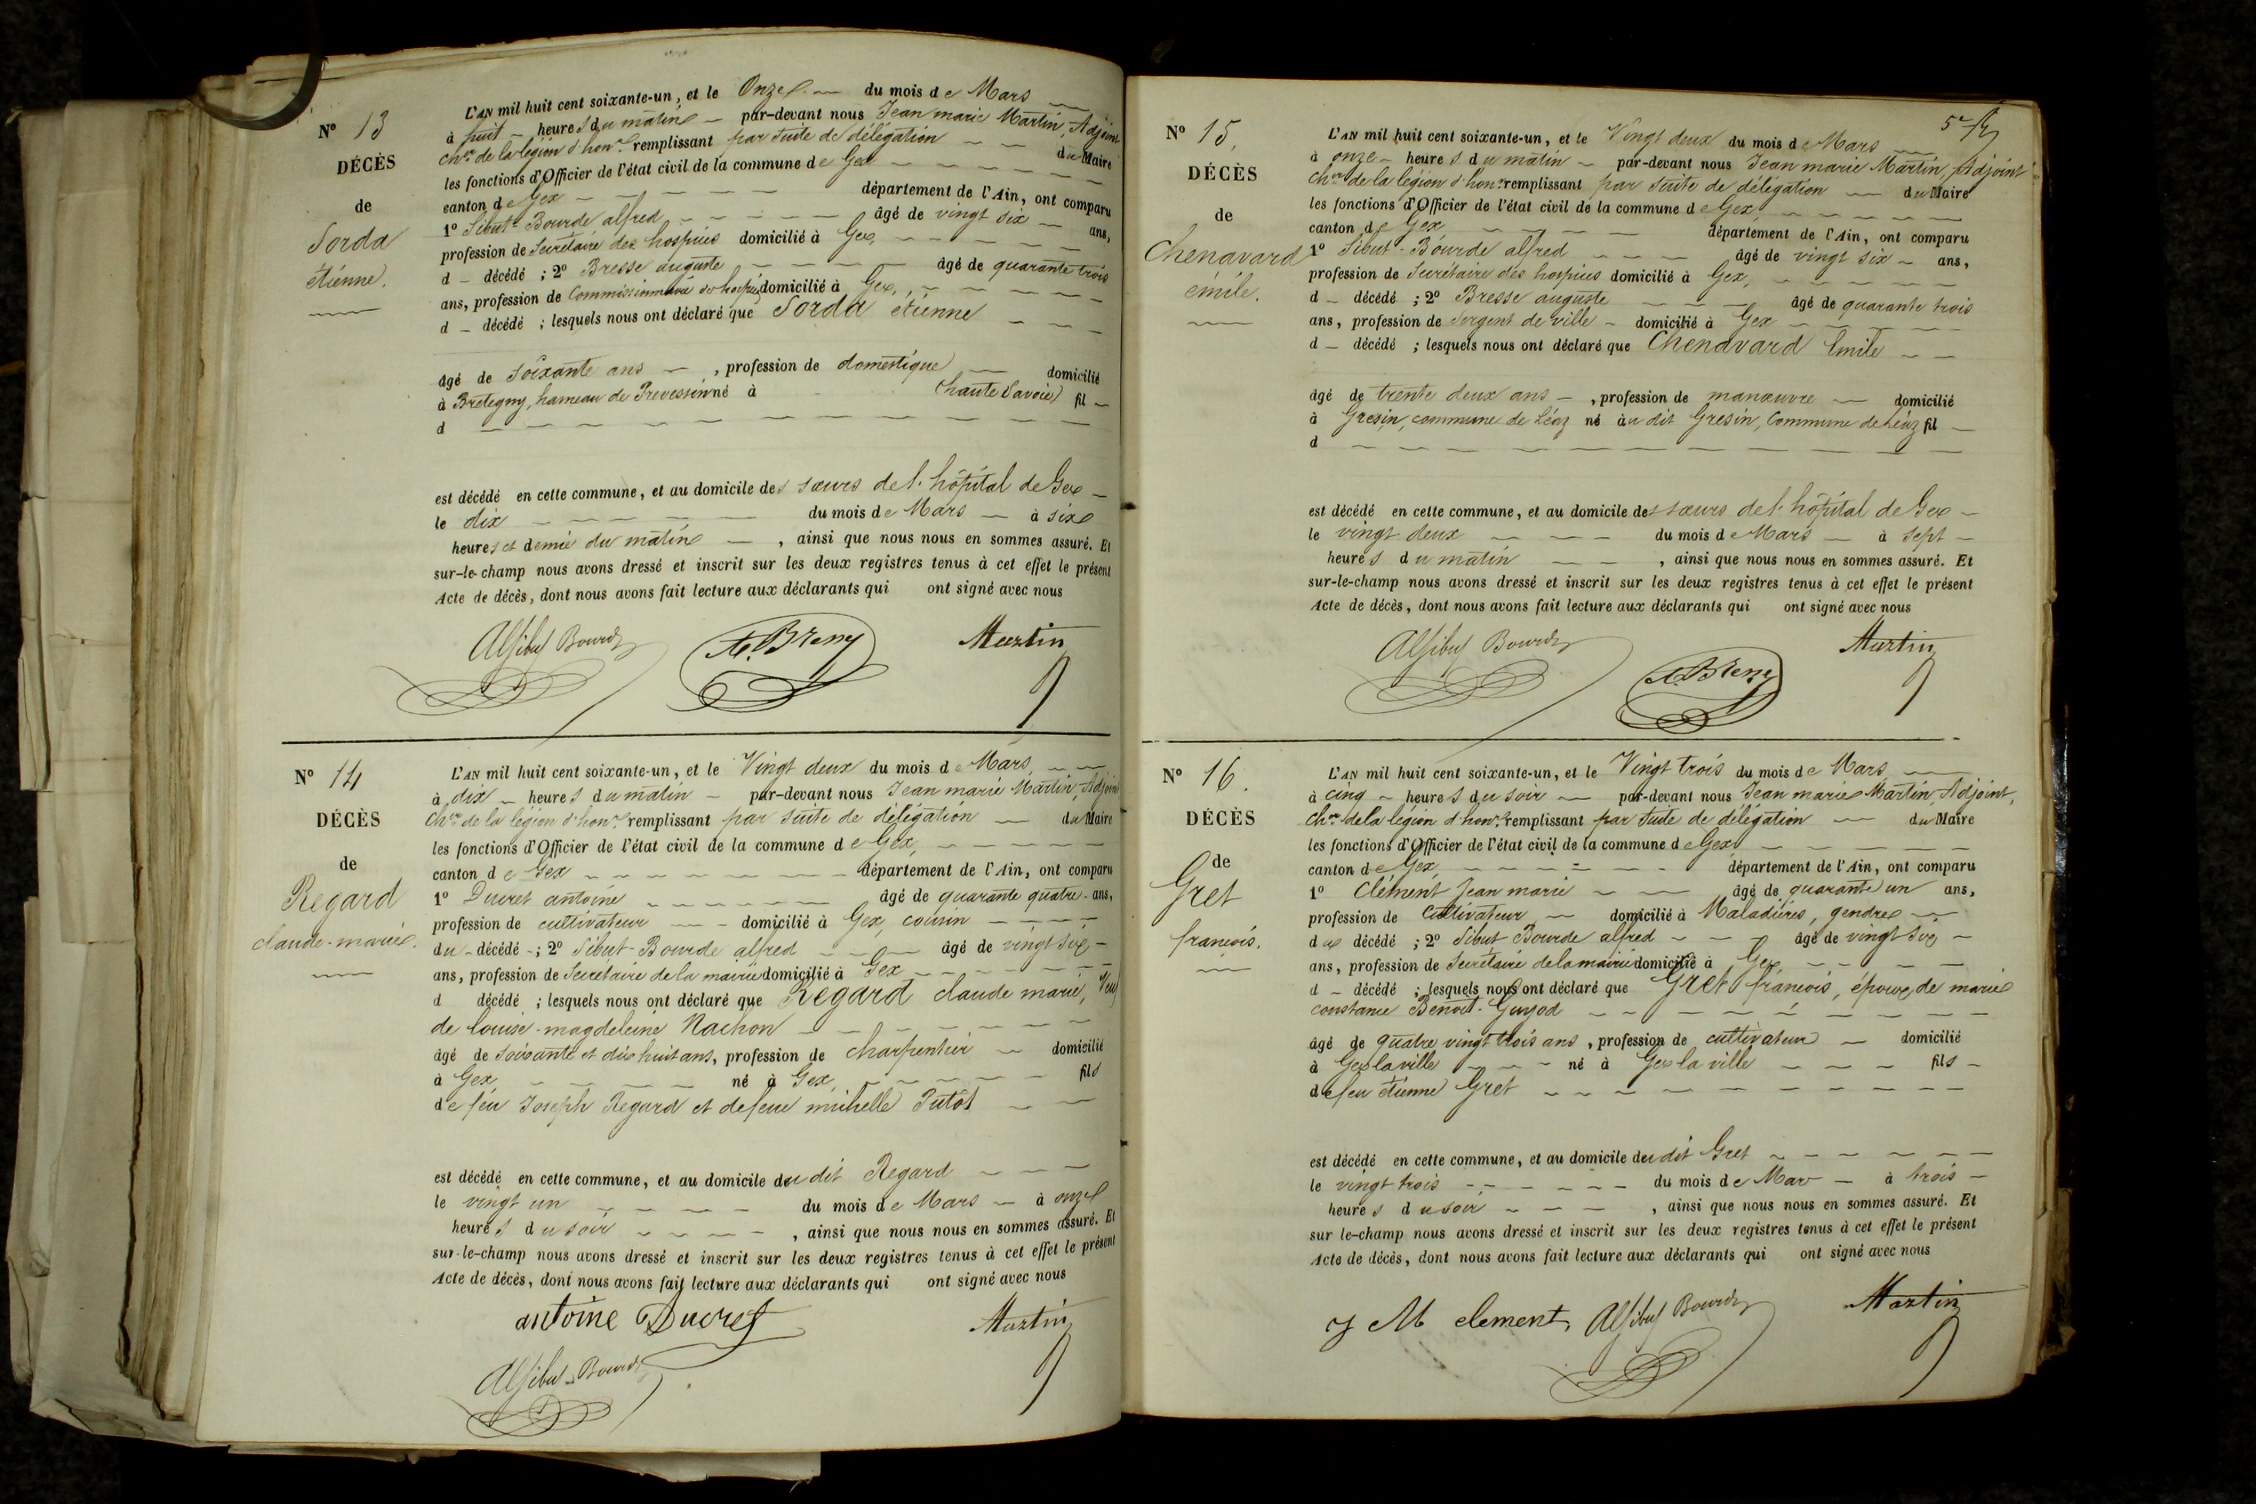 N° 13
DÉCÈS
de
Sorda
étienne.
L'AN mil huit cent soixante-un, et le Onze du mois de Mars
à huit heures du matin par-devant nous Jean marie Martin, Adjoint
cher de la légion d'honr remplissant par suite de délégation du Maire
les fonctions d'Officier de l'état civil de la commune de Gex
canton de Gex département de l'Ain, ont comparu
1° Sibut-Bourde alfred âgé de vingt six ans,
profession de Secrétaire des hospices domicilié à Gex,
d décédé ; 2° Bresse auguste âgé de quarante trois
ans, profession de Commissionnaire des hospices domicilié à Gex,
d décédé ; lesquels nous ont déclaré que Sorda étienne
âgé de soixante ans , profession de domestique domicilié
à Bretegny, hameau de Prevessin né à (haute Savoie) fil
d
est décédé en cette commune, et au domicile des sœurs de l'hôpital de Gex
le dix du mois de Mars à six
heures et demie du matin , ainsi que nous nous en sommes assuré. Et
sur-le-champ nous avons dressé et inscrit sur les deux registres tenus à cet effet le présent
Acte de décès, dont nous avons fait lecture aux déclarants qui ont signé avec nous
Al Sibut Bourde A. Bresse Martin
N° 14
DÉCÈS
de
Regard
claude-marie.
L'AN mil huit cent soixante-un, et le Vingt deux du mois de Mars,
à dix heures du matin par-devant nous Jean marie Martin, Adjoint
Cher de la légion d'honr remplissant par suite de délégation du Maire
les fonctions d'Officier de l'état civil de la commune de Gex,
canton de Gex département de l'Ain, ont comparu
1° Ducret antoine âgé de quarante quatre ans,
profession de cultivateur domicilié à Gex, cousin
du décédé ; 2° Sibut-Bourde alfred âgé de vingt six
ans, profession de Secrétaire de la mairie domicilié à Gex
d décédé ; lesquels nous ont déclaré que Regard claude marie, Veuf
de louise-magdeleine Nachon
âgé de soixante et dix huit ans, profession de charpentier domicilié
à Gex, né à Gex, fils
de feu Joseph Regard et de feue michelle Putôt
est décédé en cette commune, et au domicile du dit Regard
le vingt un du mois de Mars à onze
heures du soir , ainsi que nous nous en sommes assuré. Et
sur-le-champ nous avons dressé et inscrit sur les deux registres tenus à cet effet le présent
Acte de décès, dont nous avons fait lecture aux déclarants qui ont signé avec nous
antoine Ducret Martin
Al Sibut-Bourde
N° 15,
DÉCÈS
de
Chenavard
émile.
L'AN mil huit cent soixante-un, et le Vingt deux du mois de Mars
à onze heures du matin par-devant nous Jean marie Martin, Adjoint
Cher de la légion d'honr remplissant par suite de délégation du Maire
les fonctions d'Officier de l'état civil de la commune de Gex,
canton de Gex, département de l'Ain, ont comparu
1° Sibut-Bourde alfred âgé de vingt six ans,
profession de Secrétaire des hospices domicilié à Gex,
d décédé ; 2° Bresse auguste âgé de quarante trois
ans, profession de Sergent de ville domicilié à Gex
d décédé ; lesquels nous ont déclaré que Chenavard Emile
âgé de trente deux ans , profession de manœuvre domicilié
à Gresin, commune de Léaz né à u dit Gresin, Commune de Léaz fil
d
est décédé en cette commune, et au domicile des sœurs de l'hôpital de Gex
le vingt deux du mois de Mars à sept
heures du matin , ainsi que nous nous en sommes assuré. Et
sur-le-champ nous avons dressé et inscrit sur les deux registres tenus à cet effet le présent
Acte de décès, dont nous avons fait lecture aux déclarants qui ont signé avec nous
Al Sibut Bourde A. Bresse Martin
N° 16.
DÉCÈS
de
Gret
françois.
L'AN mil huit cent soixante-un, et le Vingt trois du mois de Mars
à cinq heures du soir par-devant nous Jean marie Martin, Adjoint,
Cher de la légion d'honr remplissant par suite de délégation du Maire
les fonctions d'Officier de l'état civil de la commune de Gex
canton de Gex, département de l'Ain, ont comparu
1° Clément Jean marie âgé de quarante un ans,
profession de Cultivateur domicilié à Maladières, gendre
du décédé ; 2° Sibut Bourde alfred âgé de vingt six
ans, profession de Secrétaire de la mairie domicilié à Gex
d décédé ; lesquels nous ont déclaré que Gret françois, époux de marie
constance Benoit-Guyod
âgé de quatre vingt trois ans , profession de cultivateur domicilié
à Gex la ville né à Gex la ville fils
de feu étienne Gret
est décédé en cette commune, et au domicile du dit Gret
le vingt trois du mois de Mars à trois
heures du soir , ainsi que nous nous en sommes assuré. Et
sur le-champ nous avons dressé et inscrit sur les deux registres tenus à cet effet le présent
Acte de décès, dont nous avons fait lecture aux déclarants qui ont signé avec nous
J M clement, Al Sibut Bourde Martin